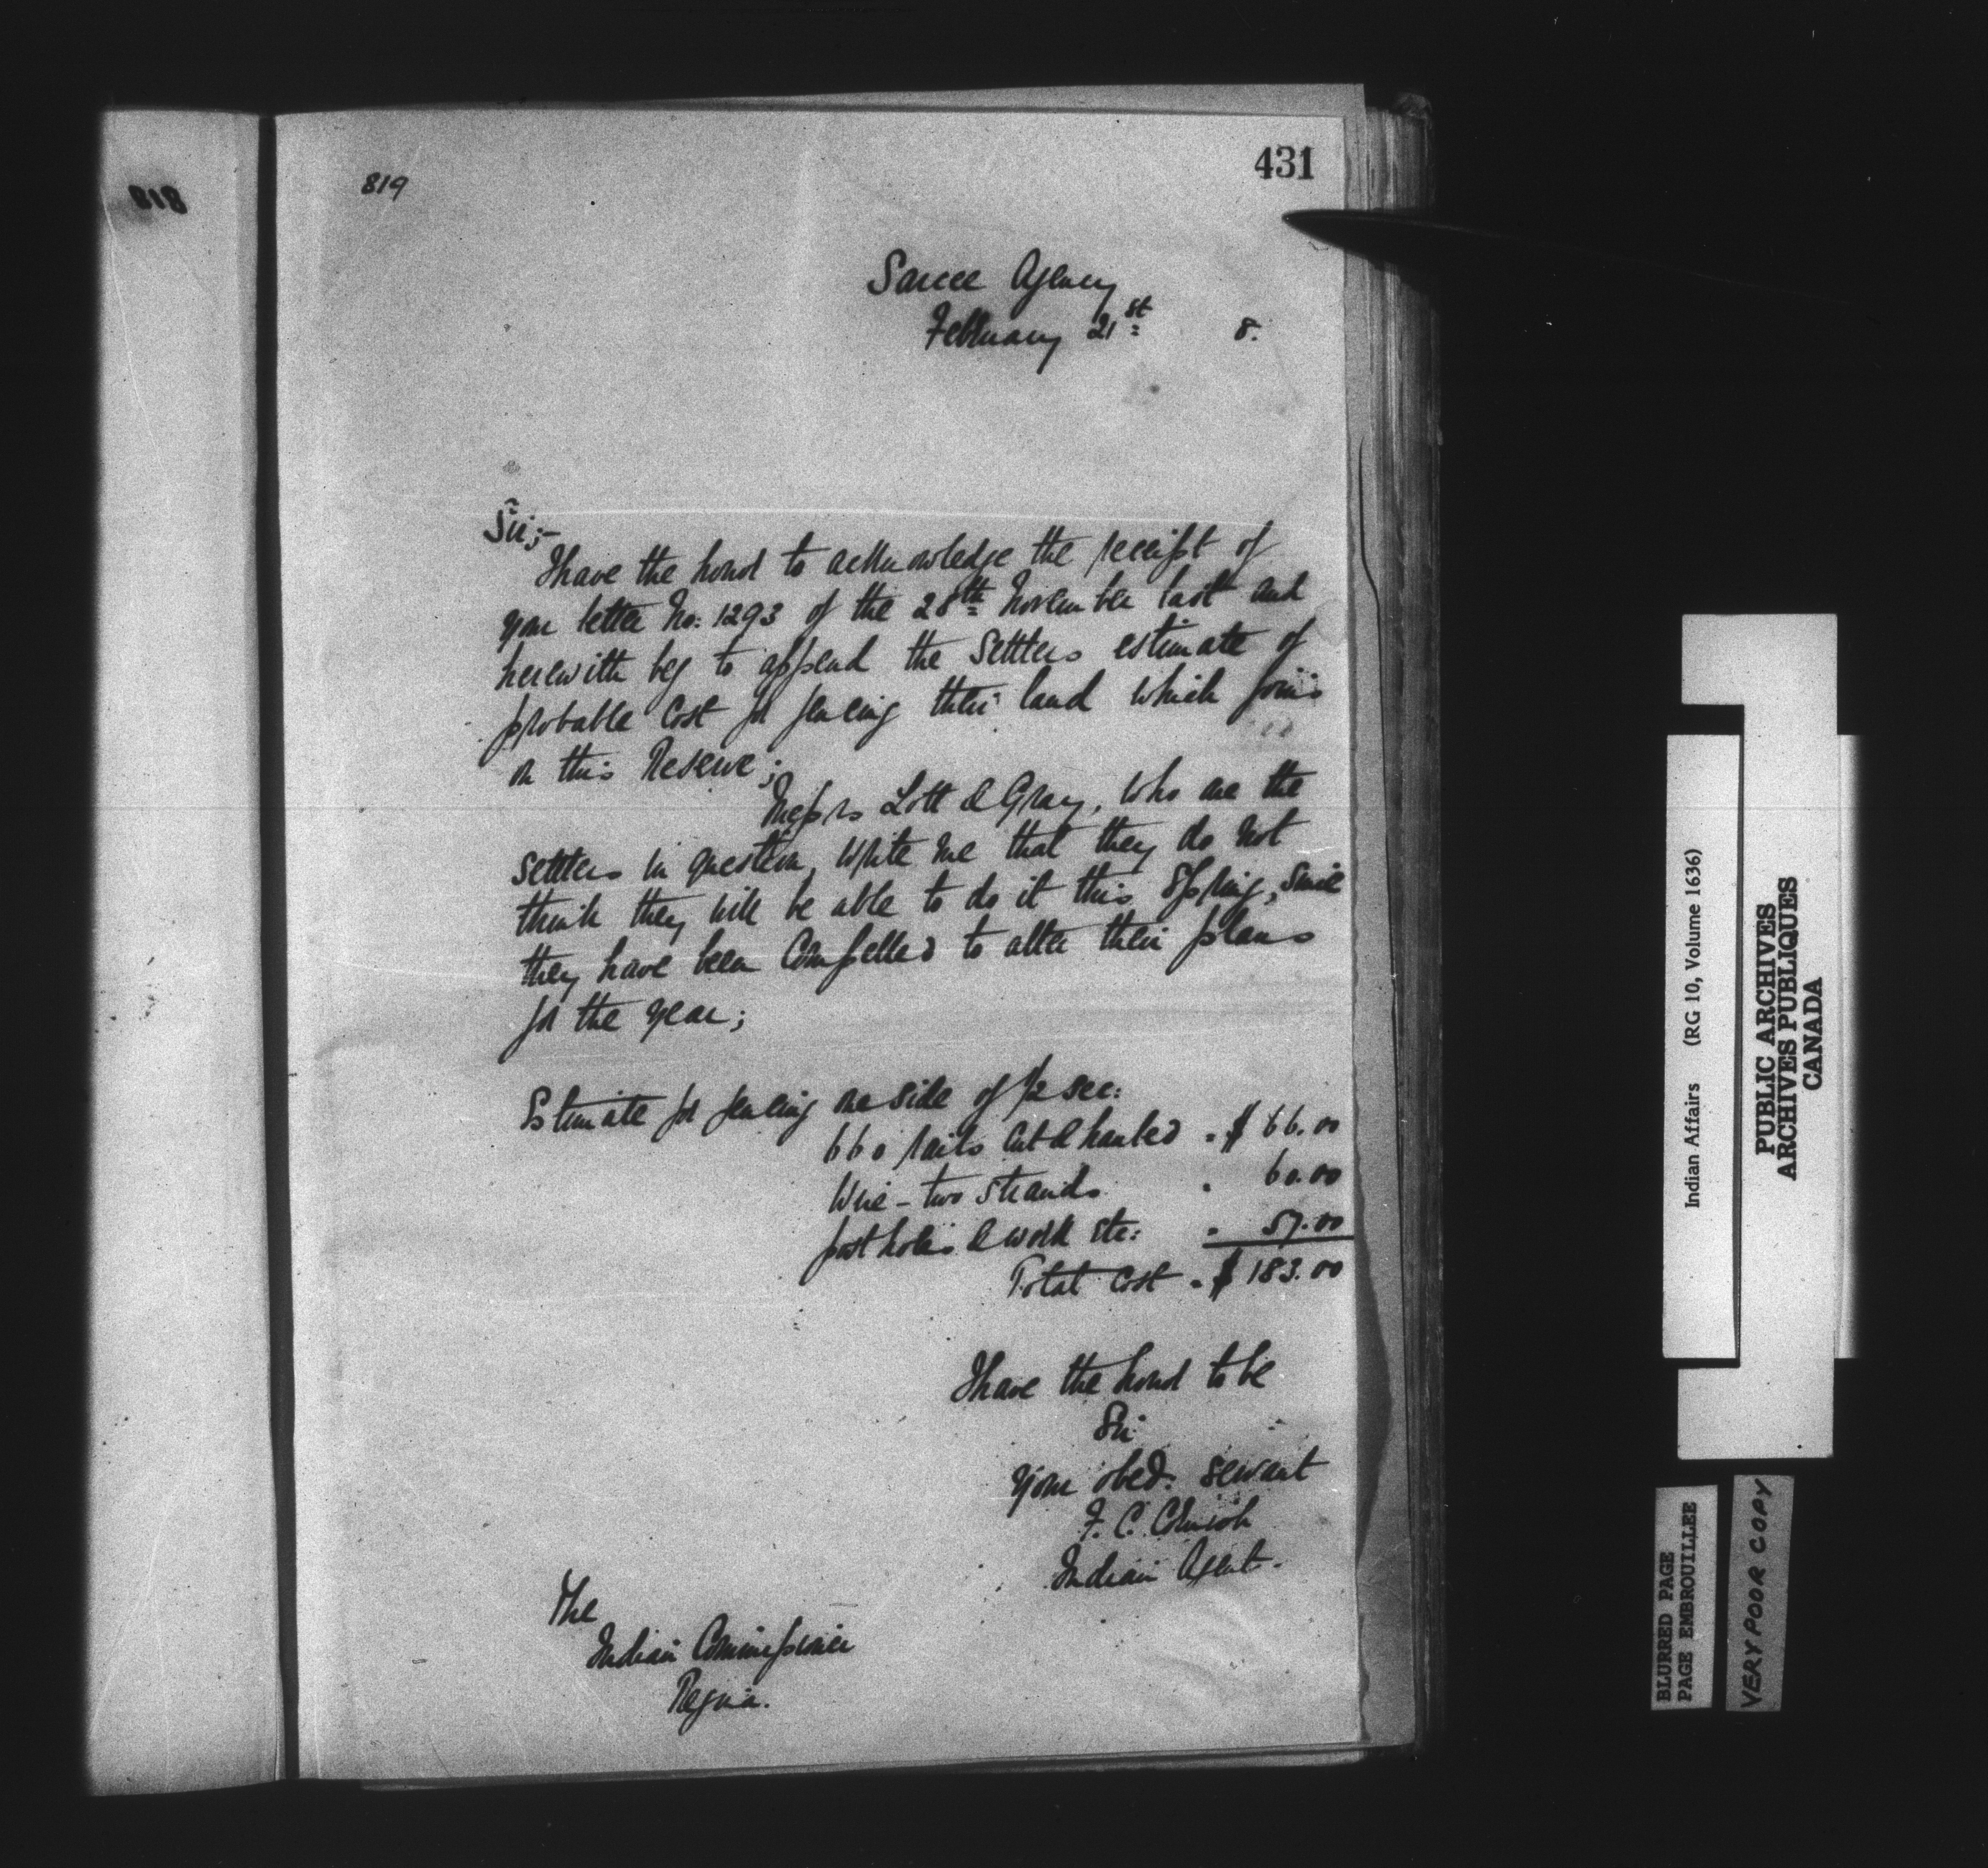 818
819
431
Sarcee Agency
February 21st 8.
Sir;-
I have the honor to acknowledge the receipt of
your letter No: 1293 of the 28th November last and
herewith beg to append the Settlers estimate of
probable Cost for fencing their land which joins
on this Reserve;
Messrs Lott & Gray, who are the
settlers in question, write me that they do not
think they will be able to do it this Spring, since
they have been Compelled to alter their plans
for the year;
Estimate for fencing one side of 1/2 sec:
660 rails Cut & hauled " $ 66.00
Wire - two strands " 60.00
post holes & work etc: " 57.00
Total Cost " $ 183.00
I have the honor to be
Sir
your obed. servant
F. C. Cornish
Indian Agent.
The
Indian Commissioner
Regina.
Indian Affairs (RG 10, Volume 1636)
PUBLIC ARCHIVES
ARCHIVES PUBLIQUES
CANADA
BLURRED PAGE
PAGE EMBROUILLEE
VERY POOR COPY